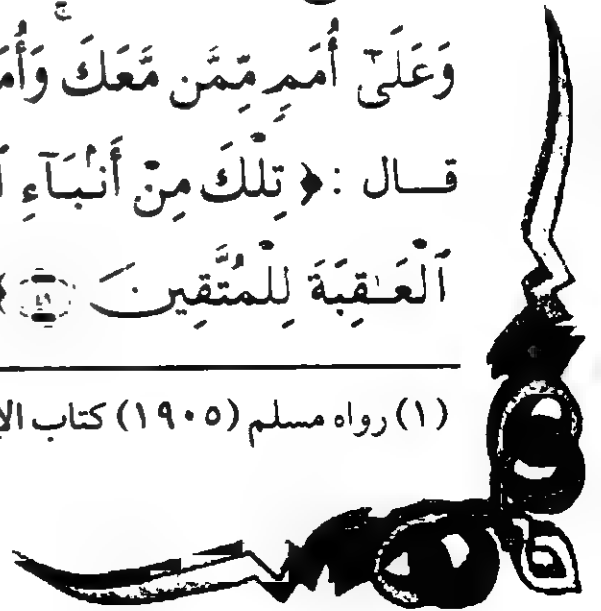 وَعَلَىٰٓ أُمَمٍ مِّمَّن مَّعَكَ ۚ وَأُمَ
قال : ﴿ تِلْكَ مِنْ أَنۢبَآءِ
ٱلْعَـٰقِبَةَ لِلْمُتَّقِينَ ٤٩ ﴾
(١) رواه مسلم (١٩٠٥) كتاب الإ